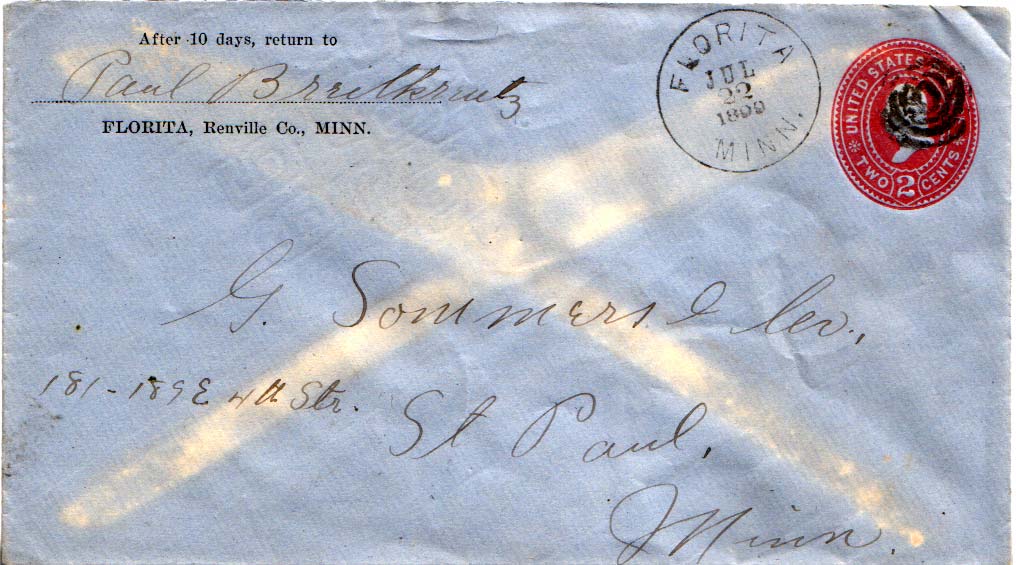 After 10 days, return to
Paul Breitkreutz
FLORITA, Renville Co., MINN.
FLORITA
JUL
22
1899
MINN.
UNITED STATES
TWO 2 CENTS
G. Sommers & Co.,
181-189 E 4th Str.
St Paul,
Minn.